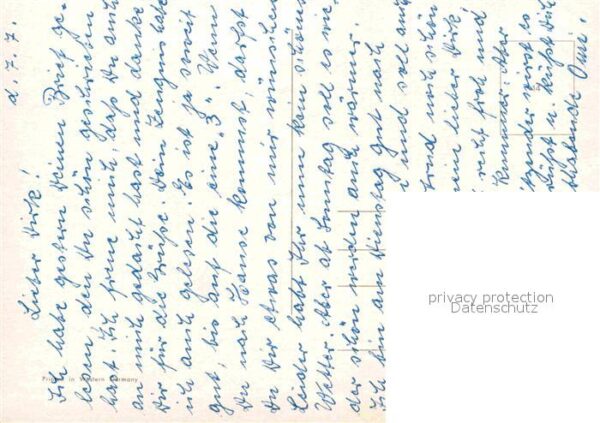 d. 7. 7.
Lieber Dirk!
Ich habe gestern Deinen Brief ge-
lesen den Du schön geschrieben
hast. Ich freue mich, daß Du auch
an mich gedacht hast und danke
Dir für die Grüße. Dein Zeugnis habe
ich auch gelesen. Es ist ja soweit
gut, bis auf die eine "3". Wenn
Du nach Hause kommst, darfst
Du Dir etwas von mir wünschen
Leider habt Ihr nun kein schönes
Wetter. Aber ab Sonntag soll es wie-
der schön werden auch wärmer.
Ich bin am Dienstag gut nach
und soll auch
und euch schön
lieber Dirk
recht froh und
Aber
wirst es
grüßt u. küßt Dich
Omi.
Printed in Western Germany
privacy protection
Datenschutz